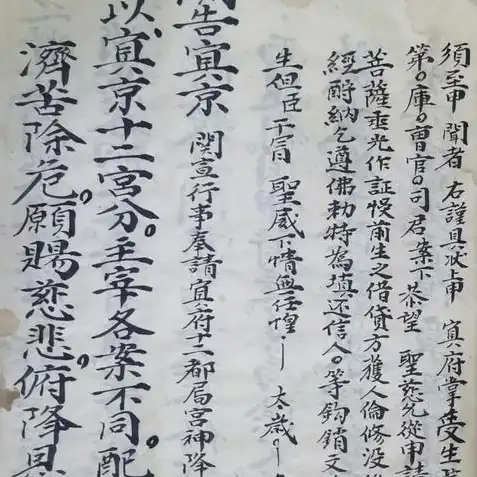 須至申 聞者 右謹具狀上申 冥府掌受生
第○庫○曹官○司君案下 恭望 聖慈允從申請
菩薩垂光作証悮前生之借貸方獲人倫修没
經酹納乞遵佛勅特為填还信人○等鈎銷文
生但臣干冒 聖威下情無任惶丨 太歲○丨
告冥京 関宣行事奉請冥府十二都局宮神降
以冥京十二宮分。主宰各案不同。配
濟苦除危。願賜慈悲。俯降